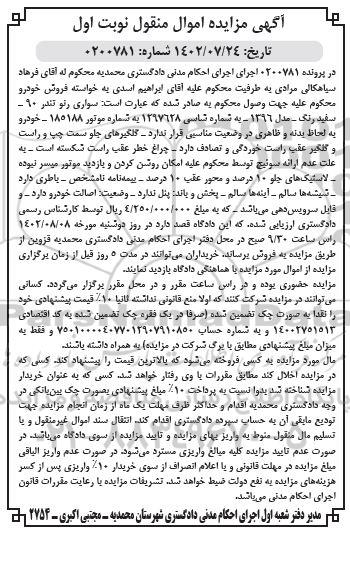 آگهی مزایده اموال منقول نوبت اول
تاریخ: ۱۴۰۲/۰۷/۲۴ شماره: ۰۲۰۰۷۸۱
در پرونده ۰۲۰۰۷۸۱ اجرای اجرای احکام مدنی دادگستری محمدیه محکوم له آقای فرهاد
سیاهکالی مرادی به طرفیت محکوم علیه آقای ابراهیم اسدی به خواسته فروش خودرو
محکوم علیه جهت وصول محکوم به صادر شده که عبارت است: سواری رنو تندر ۹۰ ـ
سفید رنگ ـ مدل ۱۳۹۶ ـ به شماره شاسی ۱۲۹۷۶۲۸ به شماره موتور ۱۸۵۱۸۸ ـ خودرو
به لحاظ بدنه و ظاهری در وضعیت مناسبی قرار ندارد ـ گلگیرهای جلو سمت چپ و راست
و گلگیر عقب راست خوردگی و تصادف دارد ـ چراغ خطر عقب راست شکسته است ـ به
علت عدم ارائه سوئیچ توسط محکوم علیه امکان روشن کردن و بازدید موتور میسر نبوده
ـ لاستیک‌های جلو ۱۰ درصد و محور عقب ۱۰ درصد ـ بیمه‌نامه نامشخص ـ باطری دارد
ـ شیشه‌ها سالم ـ آینه‌ها سالم ـ پخش و باند: پنل ندارد ـ وضعیت: اصالت خودرو دارد ـ و
قابل سرویس‌دهی می‌باشد ـ که به مبلغ ۴/۲۵۰/۰۰۰/۰۰۰ ریال توسط کارشناس رسمی
دادگستری ارزیابی شده. که این دادگاه قصد دارد در روز دوشنبه مورخه ۱۴۰۲/۰۸/۰۸
راس ساعت ۹/۳۰ صبح در محل دفتر اجرای احکام مدنی دادگستری محمدیه قزوین از
طریق مزایده به فروش برساند. خریداران می‌توانند در مدت ۵ روز قبل از زمان برگزاری
مزایده از اموال مورد مزایده با هماهنگی دادگاه بازدید نمایند.
مزایده حضوری بوده و در راس ساعت مقرر و در محل مقرر برگزار می‌گردد. کسانی
می‌توانند در مزایده شرکت کنند که اولا منع قانونی نداشته ثانیا ۱۰٪ قیمت پیشنهادی خود
را نقدا به صورت چک تضمین شده (صرفا در یک فقره چک تضمین شده به کد اقتصادی
۱۴۰۰۲۷۵۱۵۱۲ و به شماره حساب ۷۵۰۱۰۰۰۰۴۰۷۷۰۱۲۹۰۷۹۱۰۸۵۰ و فقط به
میزان مبلغ پیشنهادی مطابق با برگ شرکت در مزایده) به همراه داشته باشند.
مال مورد مزایده به کسی فروخته می‌شود که بالاترین قیمت را پیشنهاد کند. کسی که
در مزایده اخلال کند مطابق مقررات با وی رفتار خواهد شد. کسی که به عنوان خریدار
مزایده شناخته شد بدوا نسبت به پرداخت ۱۰٪ مبلغ پیشنهادی بصورت چک بین‌بانکی در
وجه دادگستری محمدیه اقدام و حداکثر ظرف مهلت یک ماه از زمان انجام مزایده جهت
تودیع مابقی آن به حساب سپرده دادگستری اقدام کند. انتقال سند اموال غیرمنقول و یا
تسلیم مال منقول منوط به واریز بهای مزایده و تایید مزایده از سوی دادگاه می‌باشد. در
صورت عدم تایید مزایده کلیه مبالغ واریزی مسترد می‌شود. در صورت عدم واریز الباقی
مبلغ مزایده در مهلت قانونی و یا اعلام انصراف از سوی خریدار ۱۰٪ واریزی پس از کسر
هزینه‌های مزایده به نفع دولت ضبط خواهد شد. تشریفات مزایده با رعایت مقررات قانون
اجرای احکام مدنی می‌باشد.
مدیر دفتر شعبه اول اجرای احکام مدنی دادگستری شهرستان محمدیه ـ مجتبی اکبری ـ ۲۷۵۴